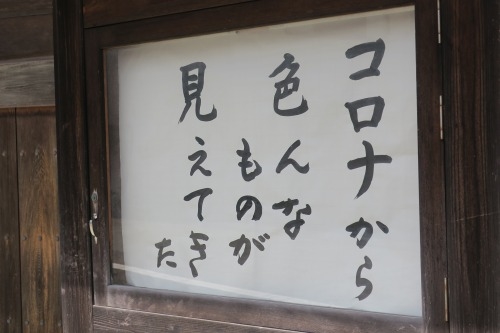 コロナから
色んな
ものが
見えてき
た